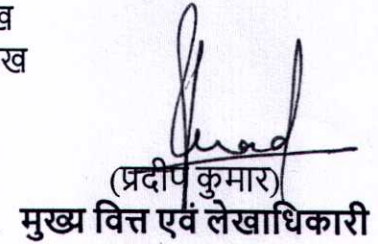 ख
ख
(प्रदीप कुमार)
मुख्य वित्त एवं लेखाधिकारी